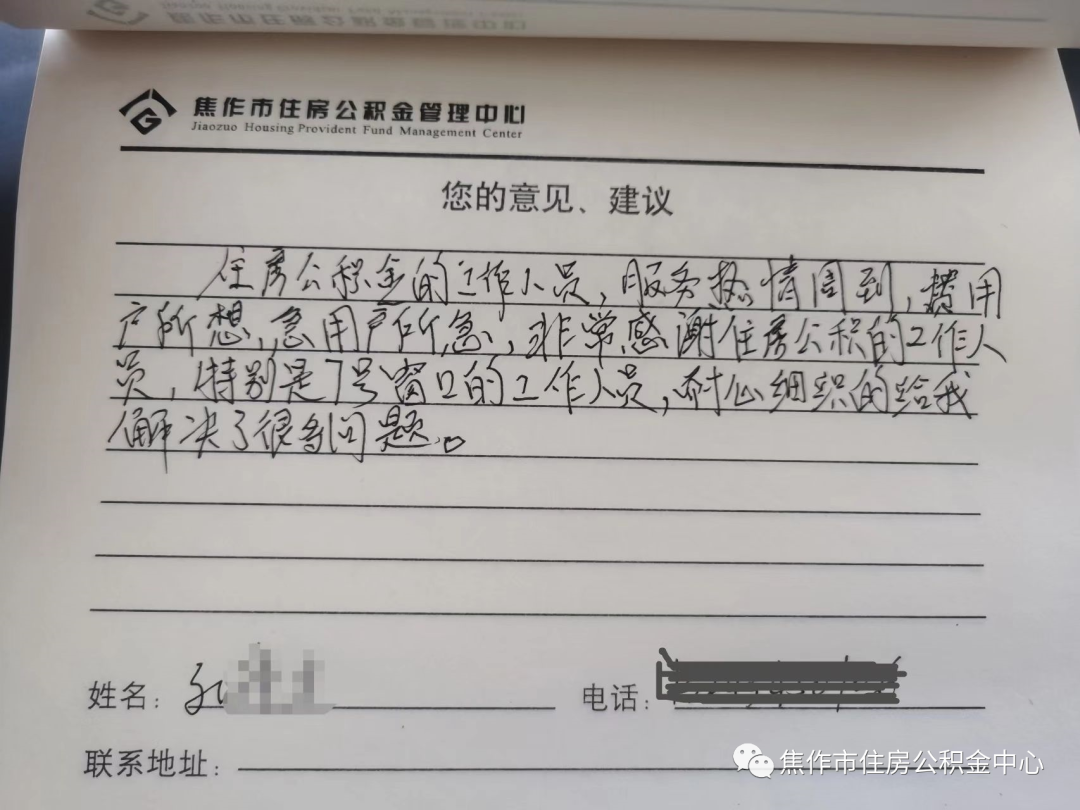 焦作市住房公积金管理中心
Jiaozuo Housing Provident Fund Management Center
您的意见、建议
住房公积金的工作人员，服务热情周到，想用
户所想，急用户所急，非常感谢住房公积的工作人
员，特别是7号窗口的工作人员，耐心细致的给我
解决了很多问题。
姓名：
电话：
联系地址：
焦作市住房公积金中心